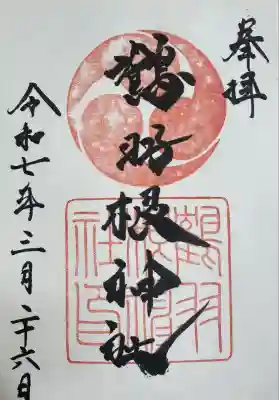 奉拝
鶴羽根神社
鶴羽
根神
社印
令和七年三月二十六日